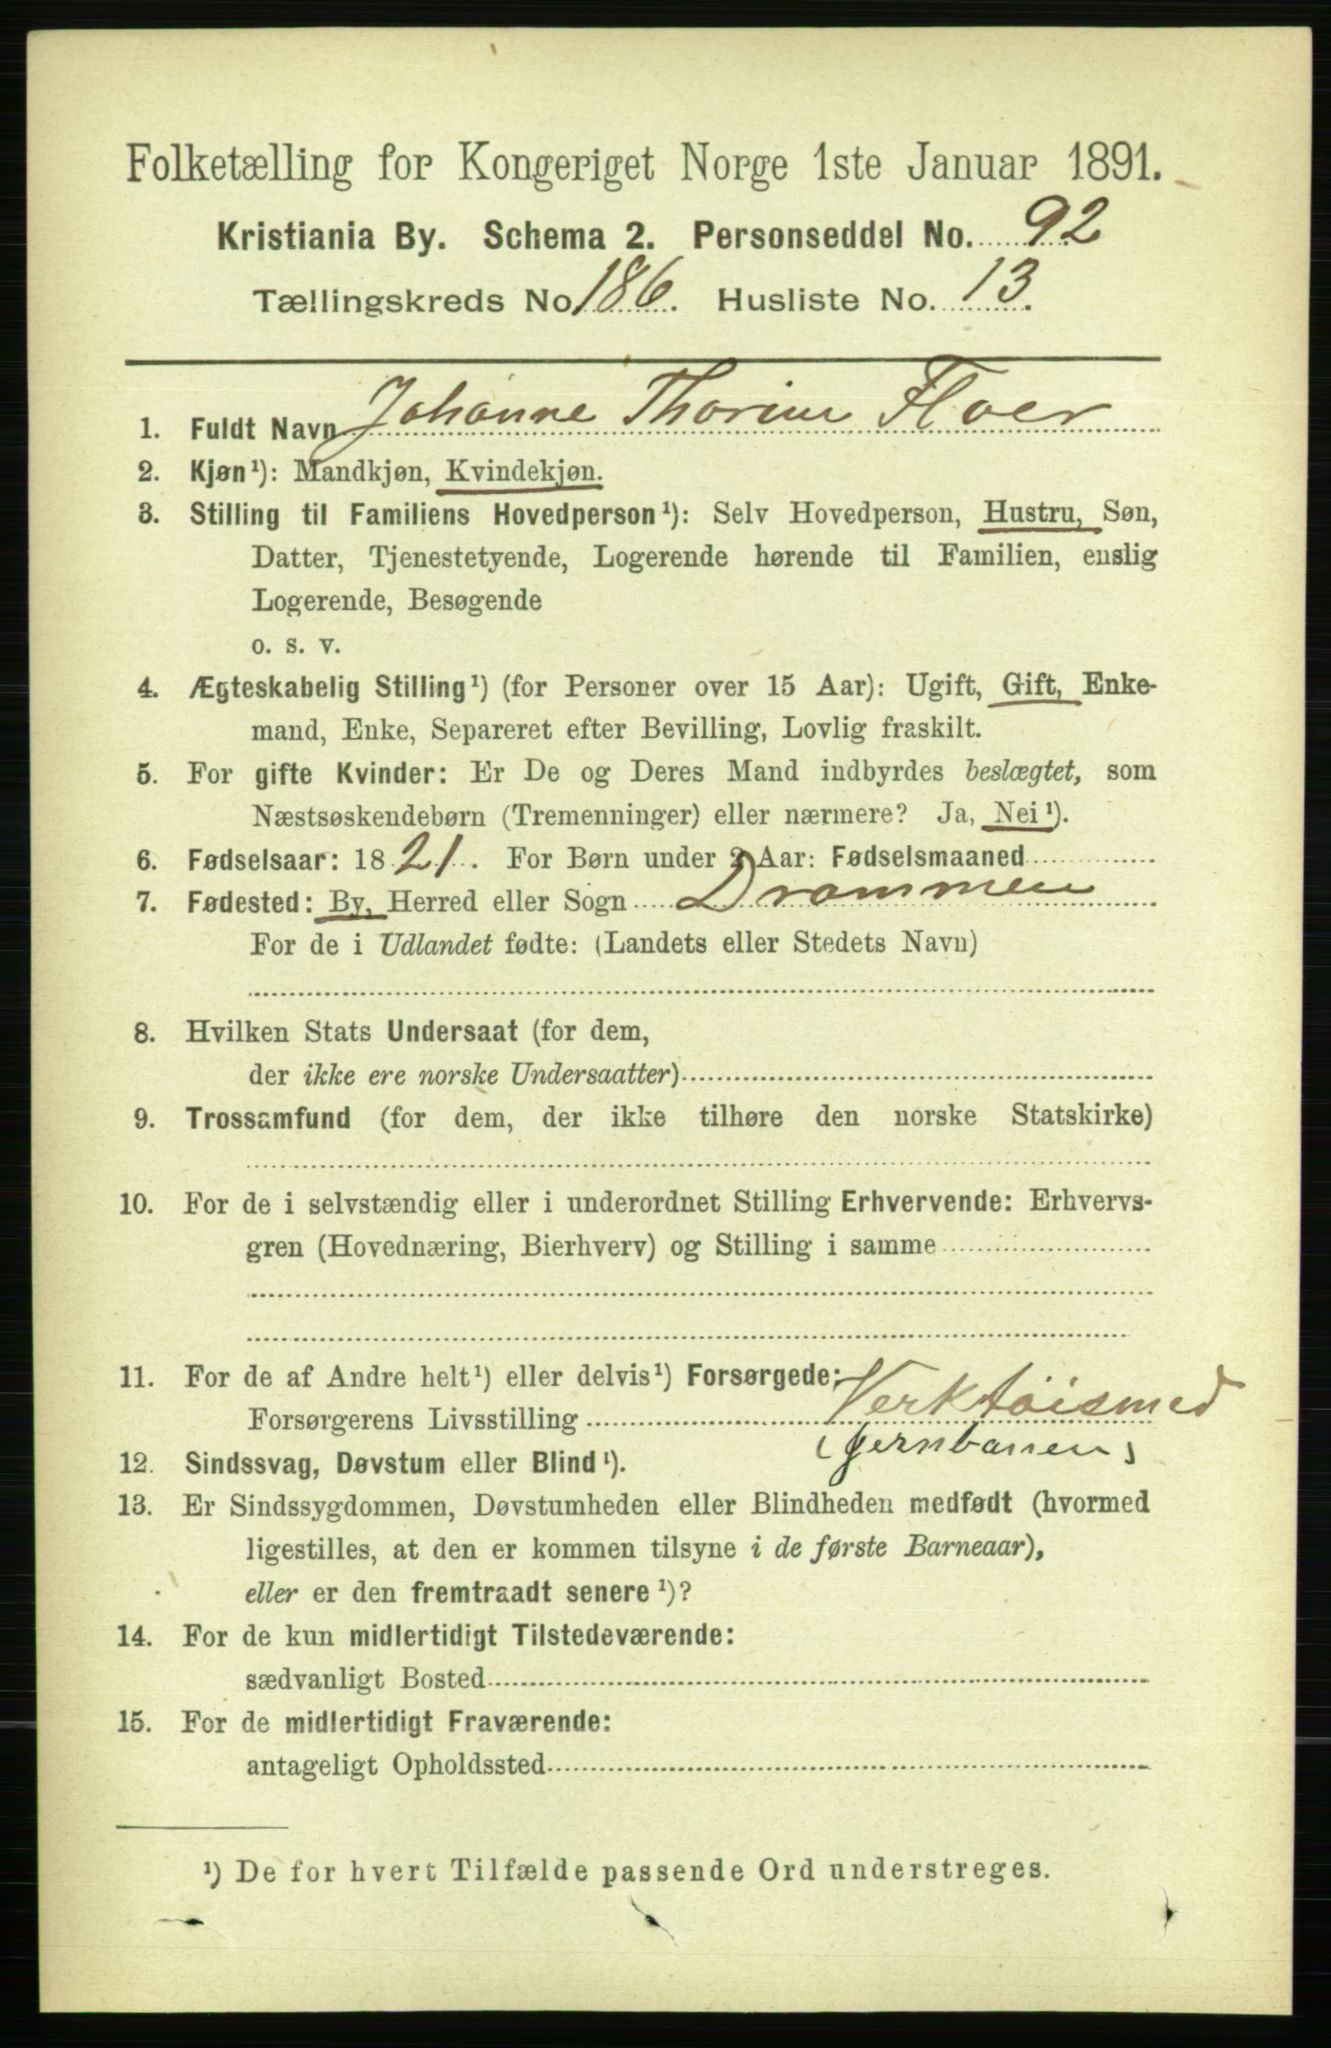 Folketælling for Kongeriget Norge 1ste Januar 1891.
Kristiania By. Schema 2. Personseddel No. 92
Tællingskreds No 186. Husliste No. 13.
1. Fuldt Navn Johanne Thorine Floer
2. Kjøn¹): Mandkjøn, Kvindekjøn.
3. Stilling til Familiens Hovedperson¹): Selv Hovedperson, Hustru, Søn,
Datter, Tjenestetyende, Logerende hørende til Familien, enslig
Logerende, Besøgende
o. s. v.
4. Ægteskabelig Stilling¹) (for Personer over 15 Aar): Ugift, Gift, Enke-
mand, Enke, Separeret efter Bevilling, Lovlig fraskilt.
5. For gifte Kvinder: Er De og Deres Mand indbyrdes beslægtet, som
Næstsøskendebørn (Tremenninger) eller nærmere? Ja, Nei¹).
6. Fødselsaar: 1821. For Børn under 2 Aar: Fødselsmaaned
7. Fødested: By, Herred eller Sogn Drammen
For de i Udlandet fødte: (Landets eller Stedets Navn)
8. Hvilken Stats Undersaat (for dem,
der ikke ere norske Undersaatter)
9. Trossamfund (for dem, der ikke tilhøre den norske Statskirke)
10. For de i selvstændig eller i underordnet Stilling Erhvervende: Erhvervs-
gren (Hovednæring, Bierhverv) og Stilling i samme
11. For de af Andre helt¹) eller delvis¹) Forsørgede:
Forsørgerens Livsstilling Verktøismed
(jernbanen)
12. Sindssvag, Døvstum eller Blind¹).
13. Er Sindssygdommen, Døvstumheden eller Blindheden medfødt (hvormed
ligestilles, at den er kommen tilsyne i de første Barneaar),
eller er den fremtraadt senere¹)?
14. For de kun midlertidigt Tilstedeværende:
sædvanligt Bosted
15. For de midlertidigt Fraværende:
antageligt Opholdssted
¹) De for hvert Tilfælde passende Ord understreges.